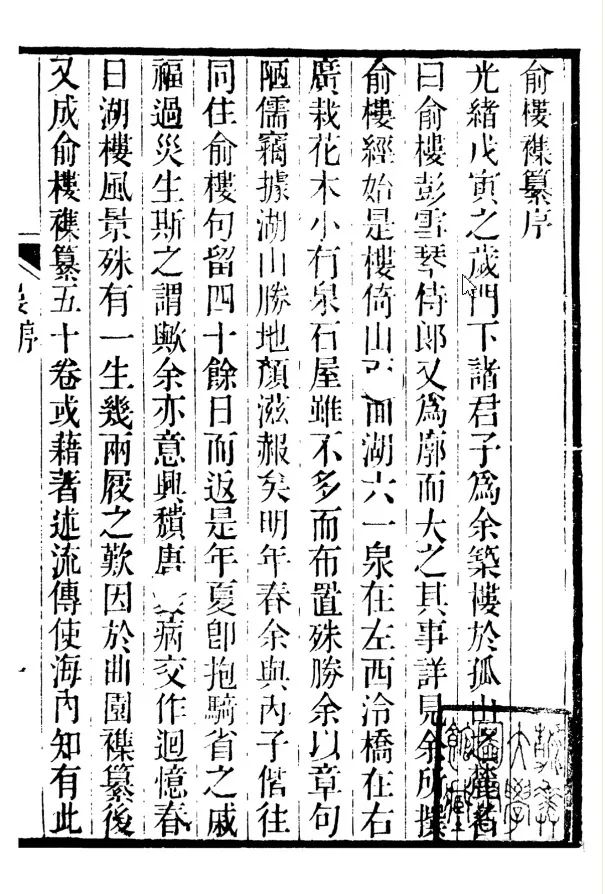 俞樓襍纂序
光緒戊寅之歲門下諸君子爲余築樓於孤山麓名
曰俞樓彭雪琴侍郎又爲廓而大之其事詳見余所撰
俞樓經始是樓倚山面湖六一泉在左西泠橋在右
廣栽花木小有泉石屋雖不多而布置殊勝余以章句
陋儒竊據湖山勝地顏滋赧矣明年春余與內子偕往
同住俞樓句留四十餘日而返是年夏卽抱騎省之戚
福過災生斯之謂歟余亦意興穨唐病交作迴憶春
日湖樓風景殊有一生幾兩屐之歎因於曲園襍纂後
又成俞樓襍纂五十卷或藉著述流傳使海內知有此
序